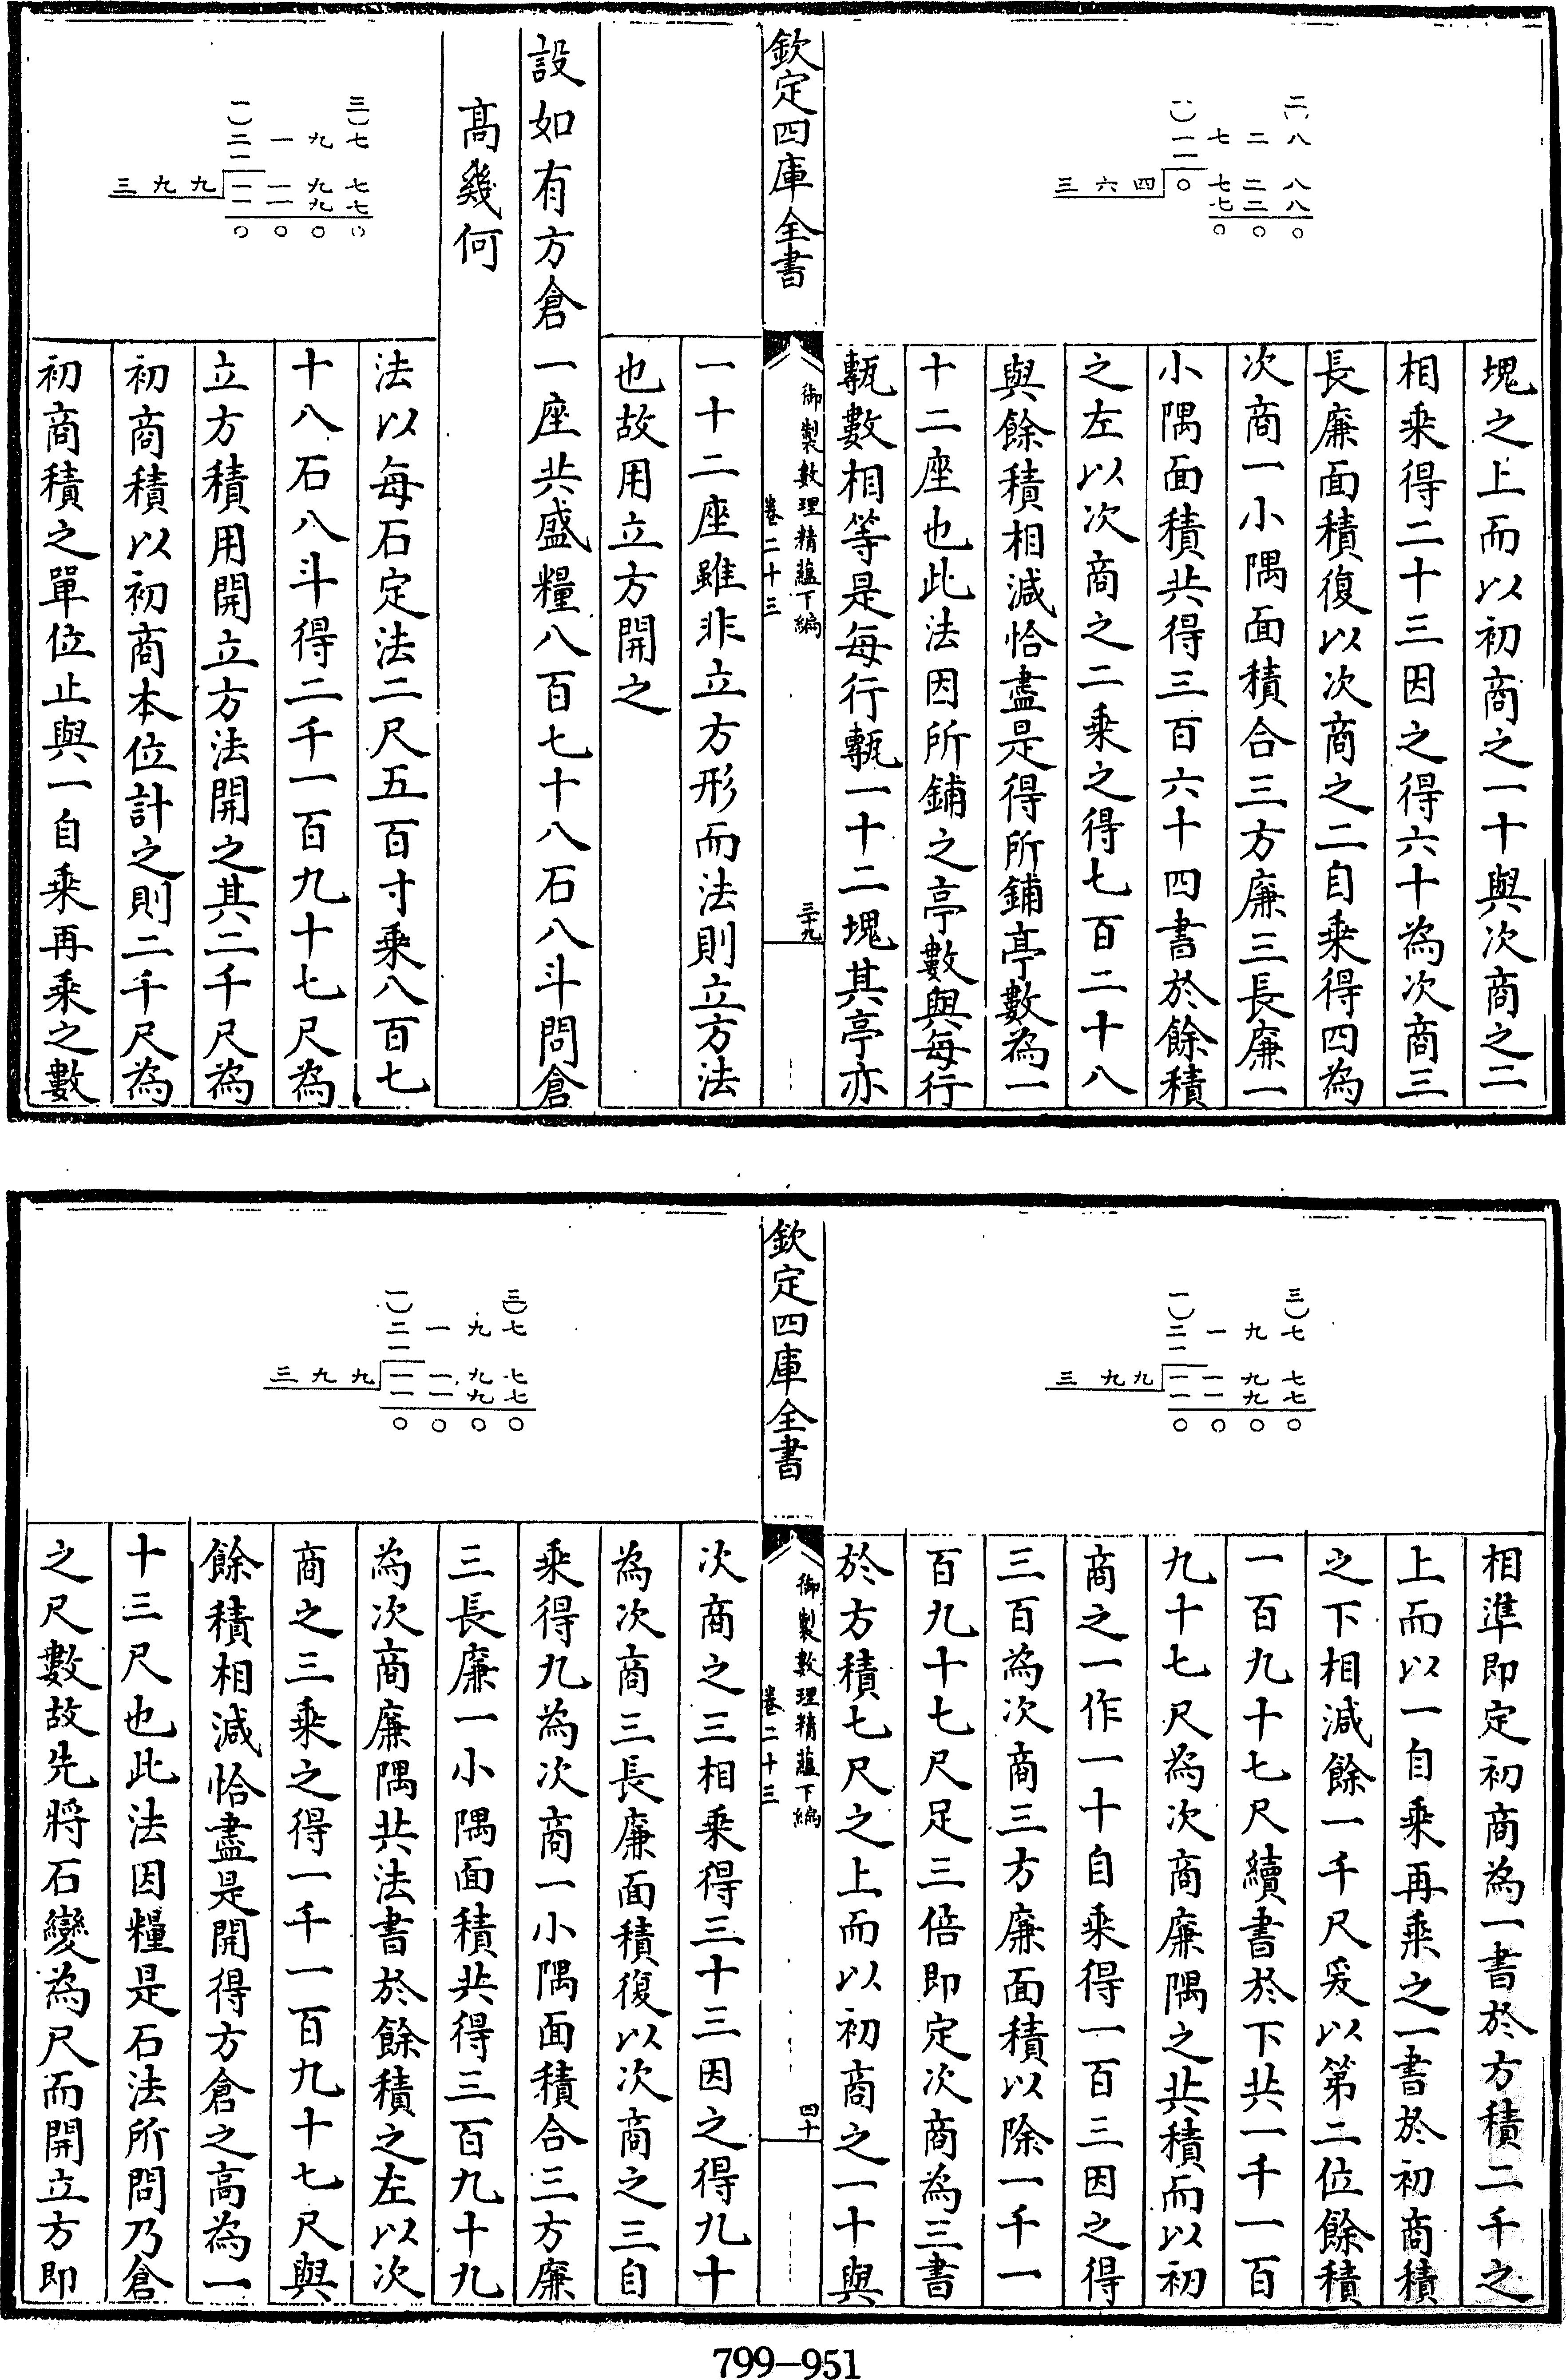 二八
一二七二八
一
三六四〇七二八
七二八
〇〇〇
塊之上而以初商之一十與次商之二
相乘得二十三因之得六十為次商三
長廉面積復以次商之二自乘得四為
次商一小隅面積合三方廉三長廉一
小隅面積共得三百六十四書於餘積
之左以次商之二乘之得七百二十八
與餘積相減恰盡是得所鋪亭數為一
十二座也此法因所鋪之亭數與每行
甎數相等是每行甎一十二塊其亭亦
欽定四庫全書
御製數理精蘊下編
卷二十三
三十九
一十二座雖非立方形而法則立方法
也故用立方開之
設如有方倉一座共盛糧八百七十八石八斗問倉
高幾何
一三
二一九七
一
三九九一一九七
一一九七
〇〇〇〇
法以每石定法二尺五百寸乘八百七
十八石八斗得二千一百九十七尺為
立方積用開立方法開之其二千尺為
初商積以初商本位計之則二千尺為
初商積之單位止與一自乘再乘之數
一三
二一九七
一
三九九一一九七
一一九七
〇〇〇〇
相準即定初商為一書於方積二千之
上而以一自乘再乘之一書於初商積
之下相減餘一千尺爰以第二位餘積
一百九十七尺續書於下共一千一百
九十七尺為次商廉隅之共積而以初
商之一作一十自乘得一百三因之得
三百為次商三方廉面積以除一千一
百九十七尺足三倍即定次商為三書
於方積七尺之上而以初商之一十與
欽定四庫全書
御製數理精蘊下編
卷二十三
四十
一三
二一九七
一
三九九一一九七
一一九七
〇〇〇〇
次商之三相乘得三十三因之得九十
為次商三長廉面積復以次商之三自
乘得九為次商一小隅面積合三方廉
三長廉一小隅面積共得三百九十九
為次商廉隅共法書於餘積之左以次
商之三乘之得一千一百九十七尺與
餘積相減恰盡是開得方倉之高為一
十三尺也此法因糧是石法所問乃倉
之尺數故先將石變為尺而開立方即
799-951